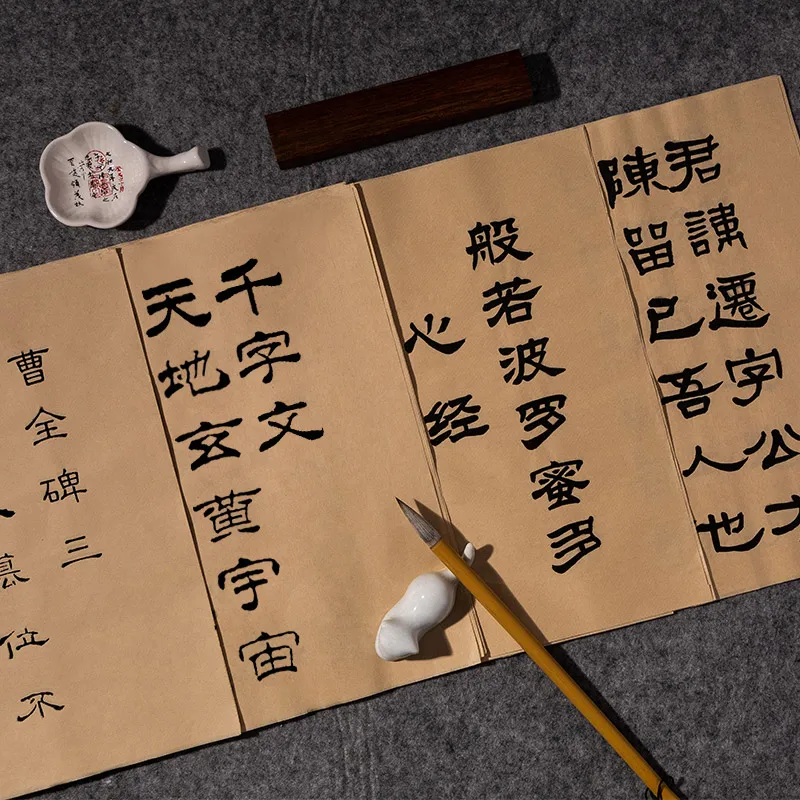 君諱遷字公
陳留已吾人也
般若波罗蜜多
心经
千字文
天地玄黄宇宙
曹全碑三
位不